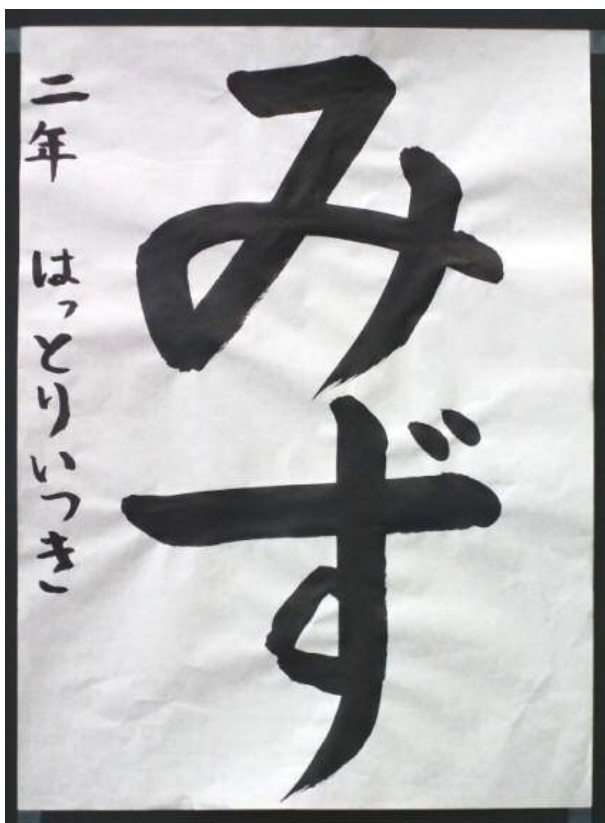 みず
二年 はっとりいつき